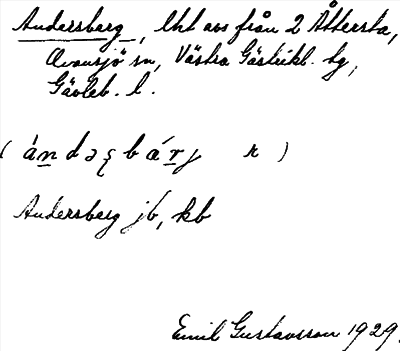 Andersberg, lht avs från 2 Åttersta,
Ovansjö sn, Västra Gästrikl. tg,
Gävleb. l.
( ándəʂbárj r )
Andersberg jb, kb
Emil Gustavsson 1929.